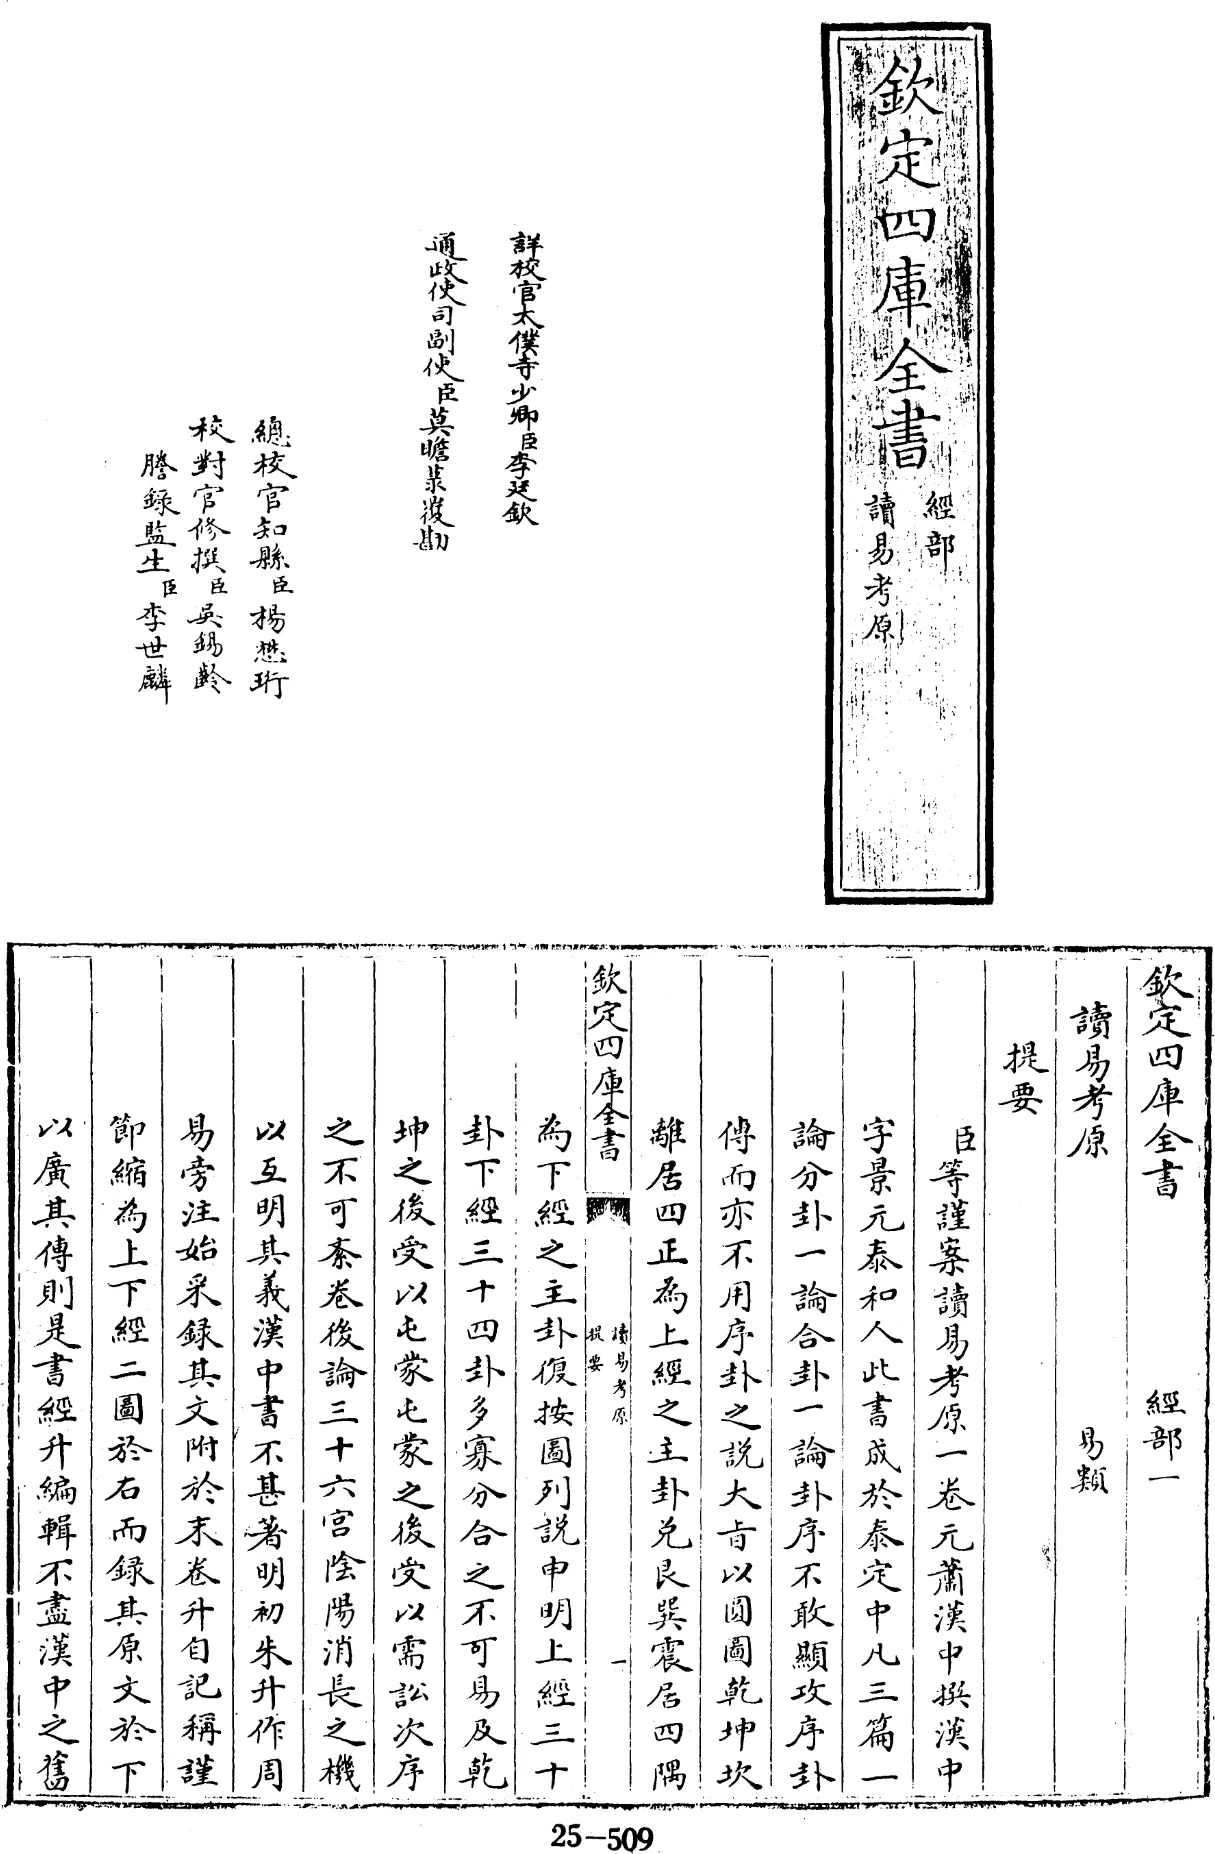 欽定四庫全書
經部
讀易考原
詳校官太僕寺少卿臣李廷欽
通政使司副使臣莫瞻菉覆勘
總校官知縣臣楊懋珩
校對官修撰臣吳錫齡
謄錄監生臣李世麟
欽定四庫全書 經部一
讀易考原 易類
提要
臣等謹案讀易考原一卷元蕭漢中撰漢中
字景元泰和人此書成於泰定中凡三篇一
論分卦一論合卦一論卦序不敢顯攻序卦
傳而亦不用序卦之説大旨以圓圖乾坤坎
離居四正為上經之主卦兑艮巽震居四隅
欽定四庫全書
讀易考原
提要
一
為下經之主卦復按圖列說申明上經三十
卦下經三十四卦多寡分合之不可易及乾
坤之後受以屯蒙屯蒙之後受以需訟次序
之不可紊卷後論三十六宫陰陽消長之機
以互明其義漢中書不甚著明初朱升作周
易旁注始采録其文附於末卷升自記稱謹
節縮為上下經二圖於右而録其原文於下
以廣其傳則是書經升編輯不盡漢中之舊
25-509